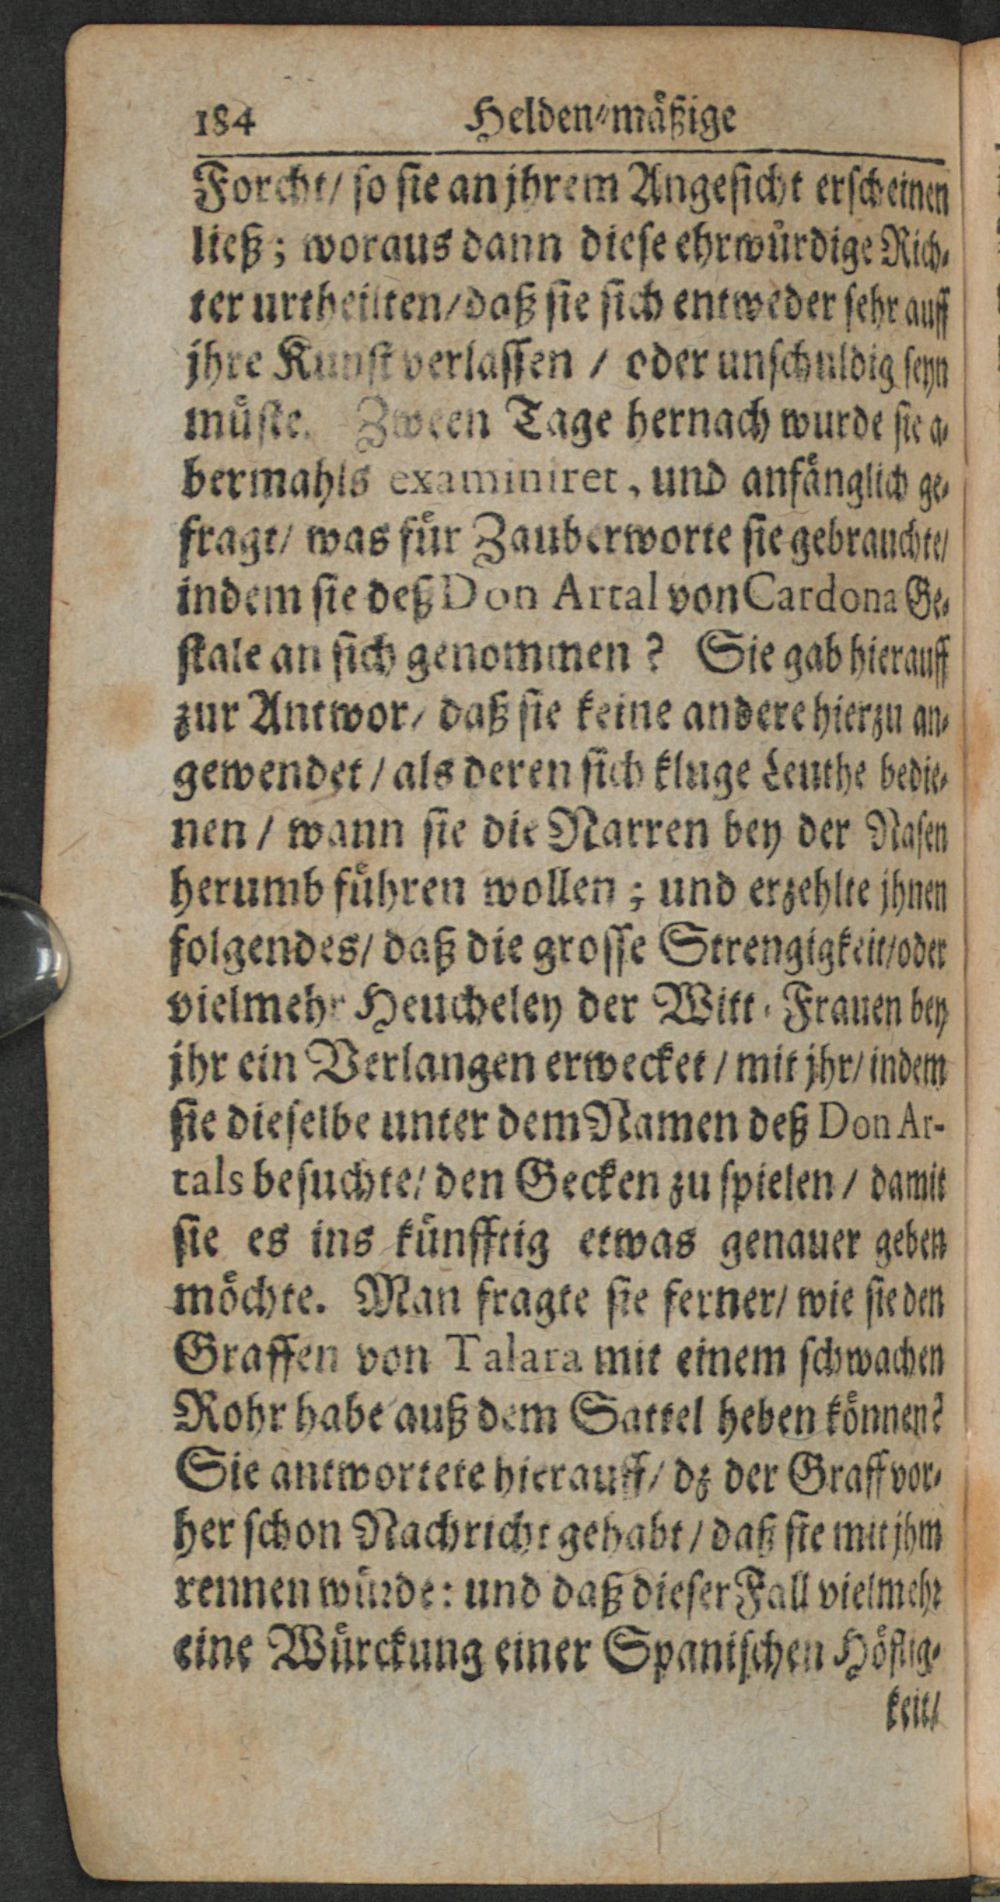 184 Helden-mäßige
Forcht/ so sie an jhrem Angesicht erscheinen
ließ; woraus dann diese ehrwürdige Rich-
ter urtheilten/ daß sie sich entweder sehr auff
jhre Kunst verlassen / oder unschuldig seyn
müste. Zween Tage hernach wurde sie a-
bermahls examiniret, und anfänglich ge-
fragt/ was für Zauberworte sie gebrauchte/
indem sie deß Don Artal von Cardona Ge-
stalt an sich genommen? Sie gab hierauff
zur Antwor/ daß sie keine andere hierzu an-
gewendet / als deren sich kluge Leuthe bedie-
nen / wann sie die Narren bey der Nasen
herumb führen wollen; und erzehlte jhnen
folgendes/ daß die grosse Strengigkeit/ oder
vielmehr Heucheley der Witt-Frauen bey
jhr ein Verlangen erwecket / mit jhr/ indem
sie dieselbe unter dem Namen deß Don Ar-
tals besuchte/ den Gecken zu spielen / damit
sie es ins künfftig etwas genauer geben
möchte. Man fragte sie ferner/ wie sie den
Graffen von Talara mit einem schwachen
Rohr habe auß dem Sattel heben können?
Sie antwortete hierauff/ dz der Graff vor-
her schon Nachricht gehabt / daß sie mit jhm
rennen würde: und daß dieser Fall vielmehr
eine Würckung einer Spanischen Höflig-
keit/